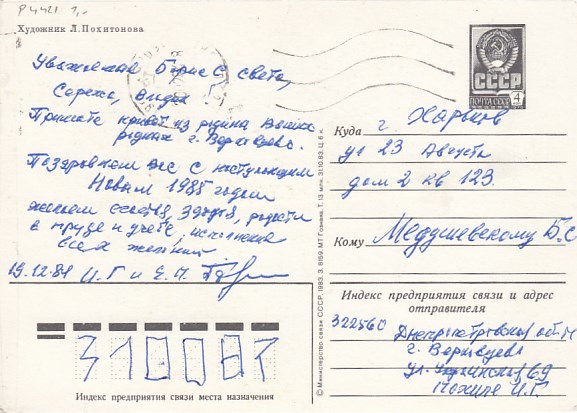 Р4421 1,-
Художник Л. Похитонова
Уважаемая Борис С, Света,
Сережа,
Примите привет из родина Ваших
родных г. Верховцево.
Поздравляем Вас с наступающим
Новым 1985 годом
желаем счастья, здоровья, радости
в труде и учебе, исполнения
всех желаний
19.12.84 И.Г и Е.П.
СССР
ПОЧТА СССР 4
Куда г. Харьков
ул 23 Августа
дом 2 кв 123.
Кому Медушевскому Б.С
Индекс предприятия связи и адрес
отправителя
322560 Днепропетровская обл
г. Верховцево
ул. 69
И.Г.
310081
Индекс предприятия связи места назначения
© Министерство связи СССР, 1983. З. 8159. МТ Гознака. Т. 13 млн. 31.10.83. Ц. 6 к.